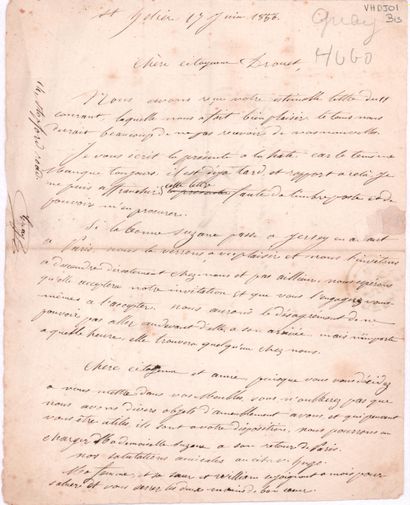 VHDJ01
B13
Quay
HUGO
St Hélier 17 Juin 1856.
Chère citoyenne Drouet,
Nous avons reçu votre estimable lettre du 11
courant, laquelle nous a fait bien plaisir le tems nous
durait beaucoup de ne pas recevoir de vos nouvelles.
Je vous écrit la présente à la hâte, car le tems me
manque toujours, il est déjà tard, et rapport à cela je
ne puis affranchir cette lettre faute de timbre poste et de
pouvoir m'en procurer.
Si la bonne Suzane passe à Jersey en allant
à Paris, nous la verrons avec plaisir et nous l'invitons
à descendre directement chez nous et pas ailleurs, nous espérons
qu'elle acceptera notre invitation et que vous l'engagerez vous-
mêmes à l'accepter. nous aurons le désagrément de ne
pouvoir pas aller au devant d'elle à son arrivée mais n'importe
à quelle heure, elle trouvera quelqu'un chez nous.
Chère citoyenne et amie, puisque vous vous décidez
à vous mettre dans vos Meubles, vous n'oublierez pas que
nous avons divers objets d'ameublement à vous et qui peuvent
vous être utiles ils sont à votre disposition, nous pourrons en
charger Mademoiselle Suzane à son retour de Paris.
Nos salutations amicales au citoyen Hugo.
Ma femme, et sa sœur et William se joignent à moi pour
saluer et vous serrer les deux mains de bon cœur.
14, Hayford road
Quay